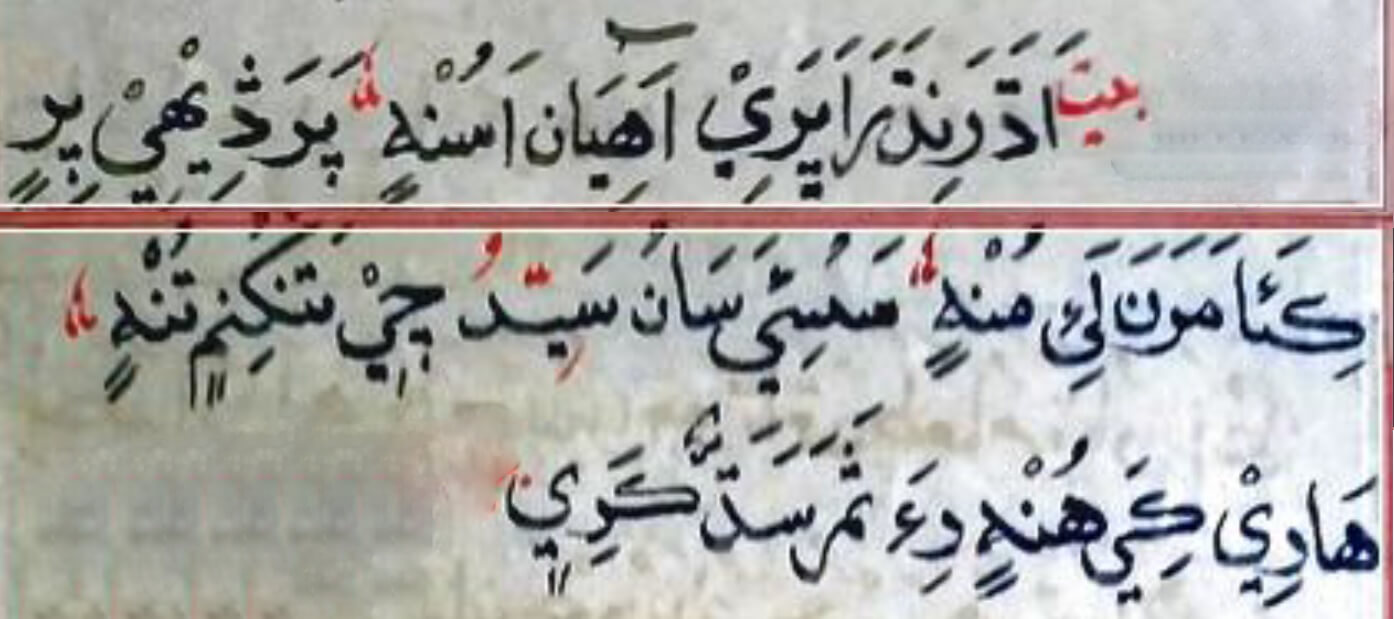 بيت اَڌَرِ نِڌَرَ اَپَرِيْ آهِيَان اَسُنْهٍ پَرَ ڏِيْهِيْ پِرٍ
ڪَئَا مَوُنَ لَئِ مُنْهٍ سَسُئِي سَانُ سَيّدُ چِيْ تنکِنم تُنْهٍ
هَادِيْ کَي هُنْهٍ دِءَ تَمَرَ سَڏَ ڪَرِي